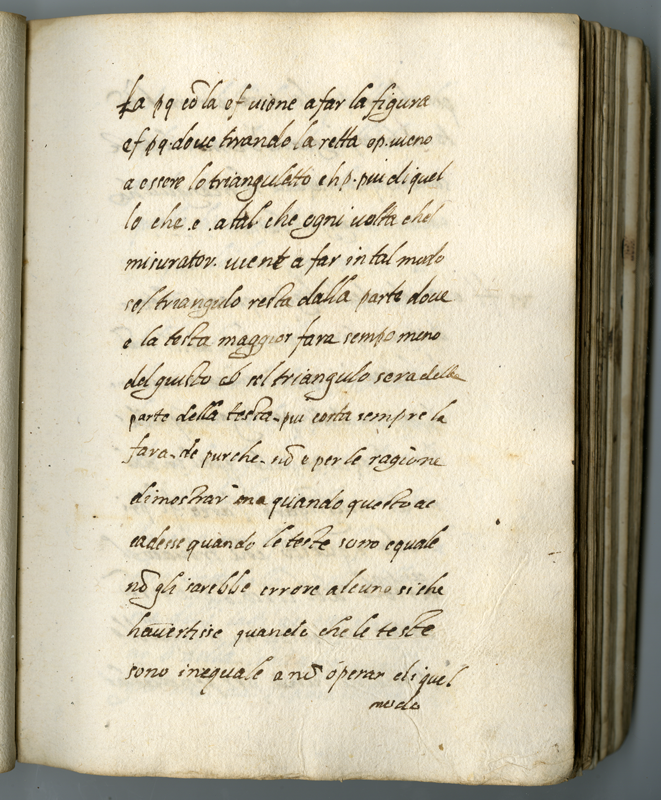 La pq cō la ef uione a far la figura
ef pq. doue tirando la retta op. uieno
a essere lo triangulatto ehp. piu di quel
lo che e. a tal che ogni uolta chel
misurator. uient a far in tal modo
sel triangulo resta dalla parte doue
e la testa maggior fara sempo meno
del giusto et sel triangulo sera della
parte della testa piu corta sempre la
fara de purche. nō e per le ragione
dimostrar ma quando questo ac
cadesse quando le teste sono equale
nō gli sarebbe errore alcuno si che
hauertisse quando che le teste
sono inequale a nō óperar di quel
modo